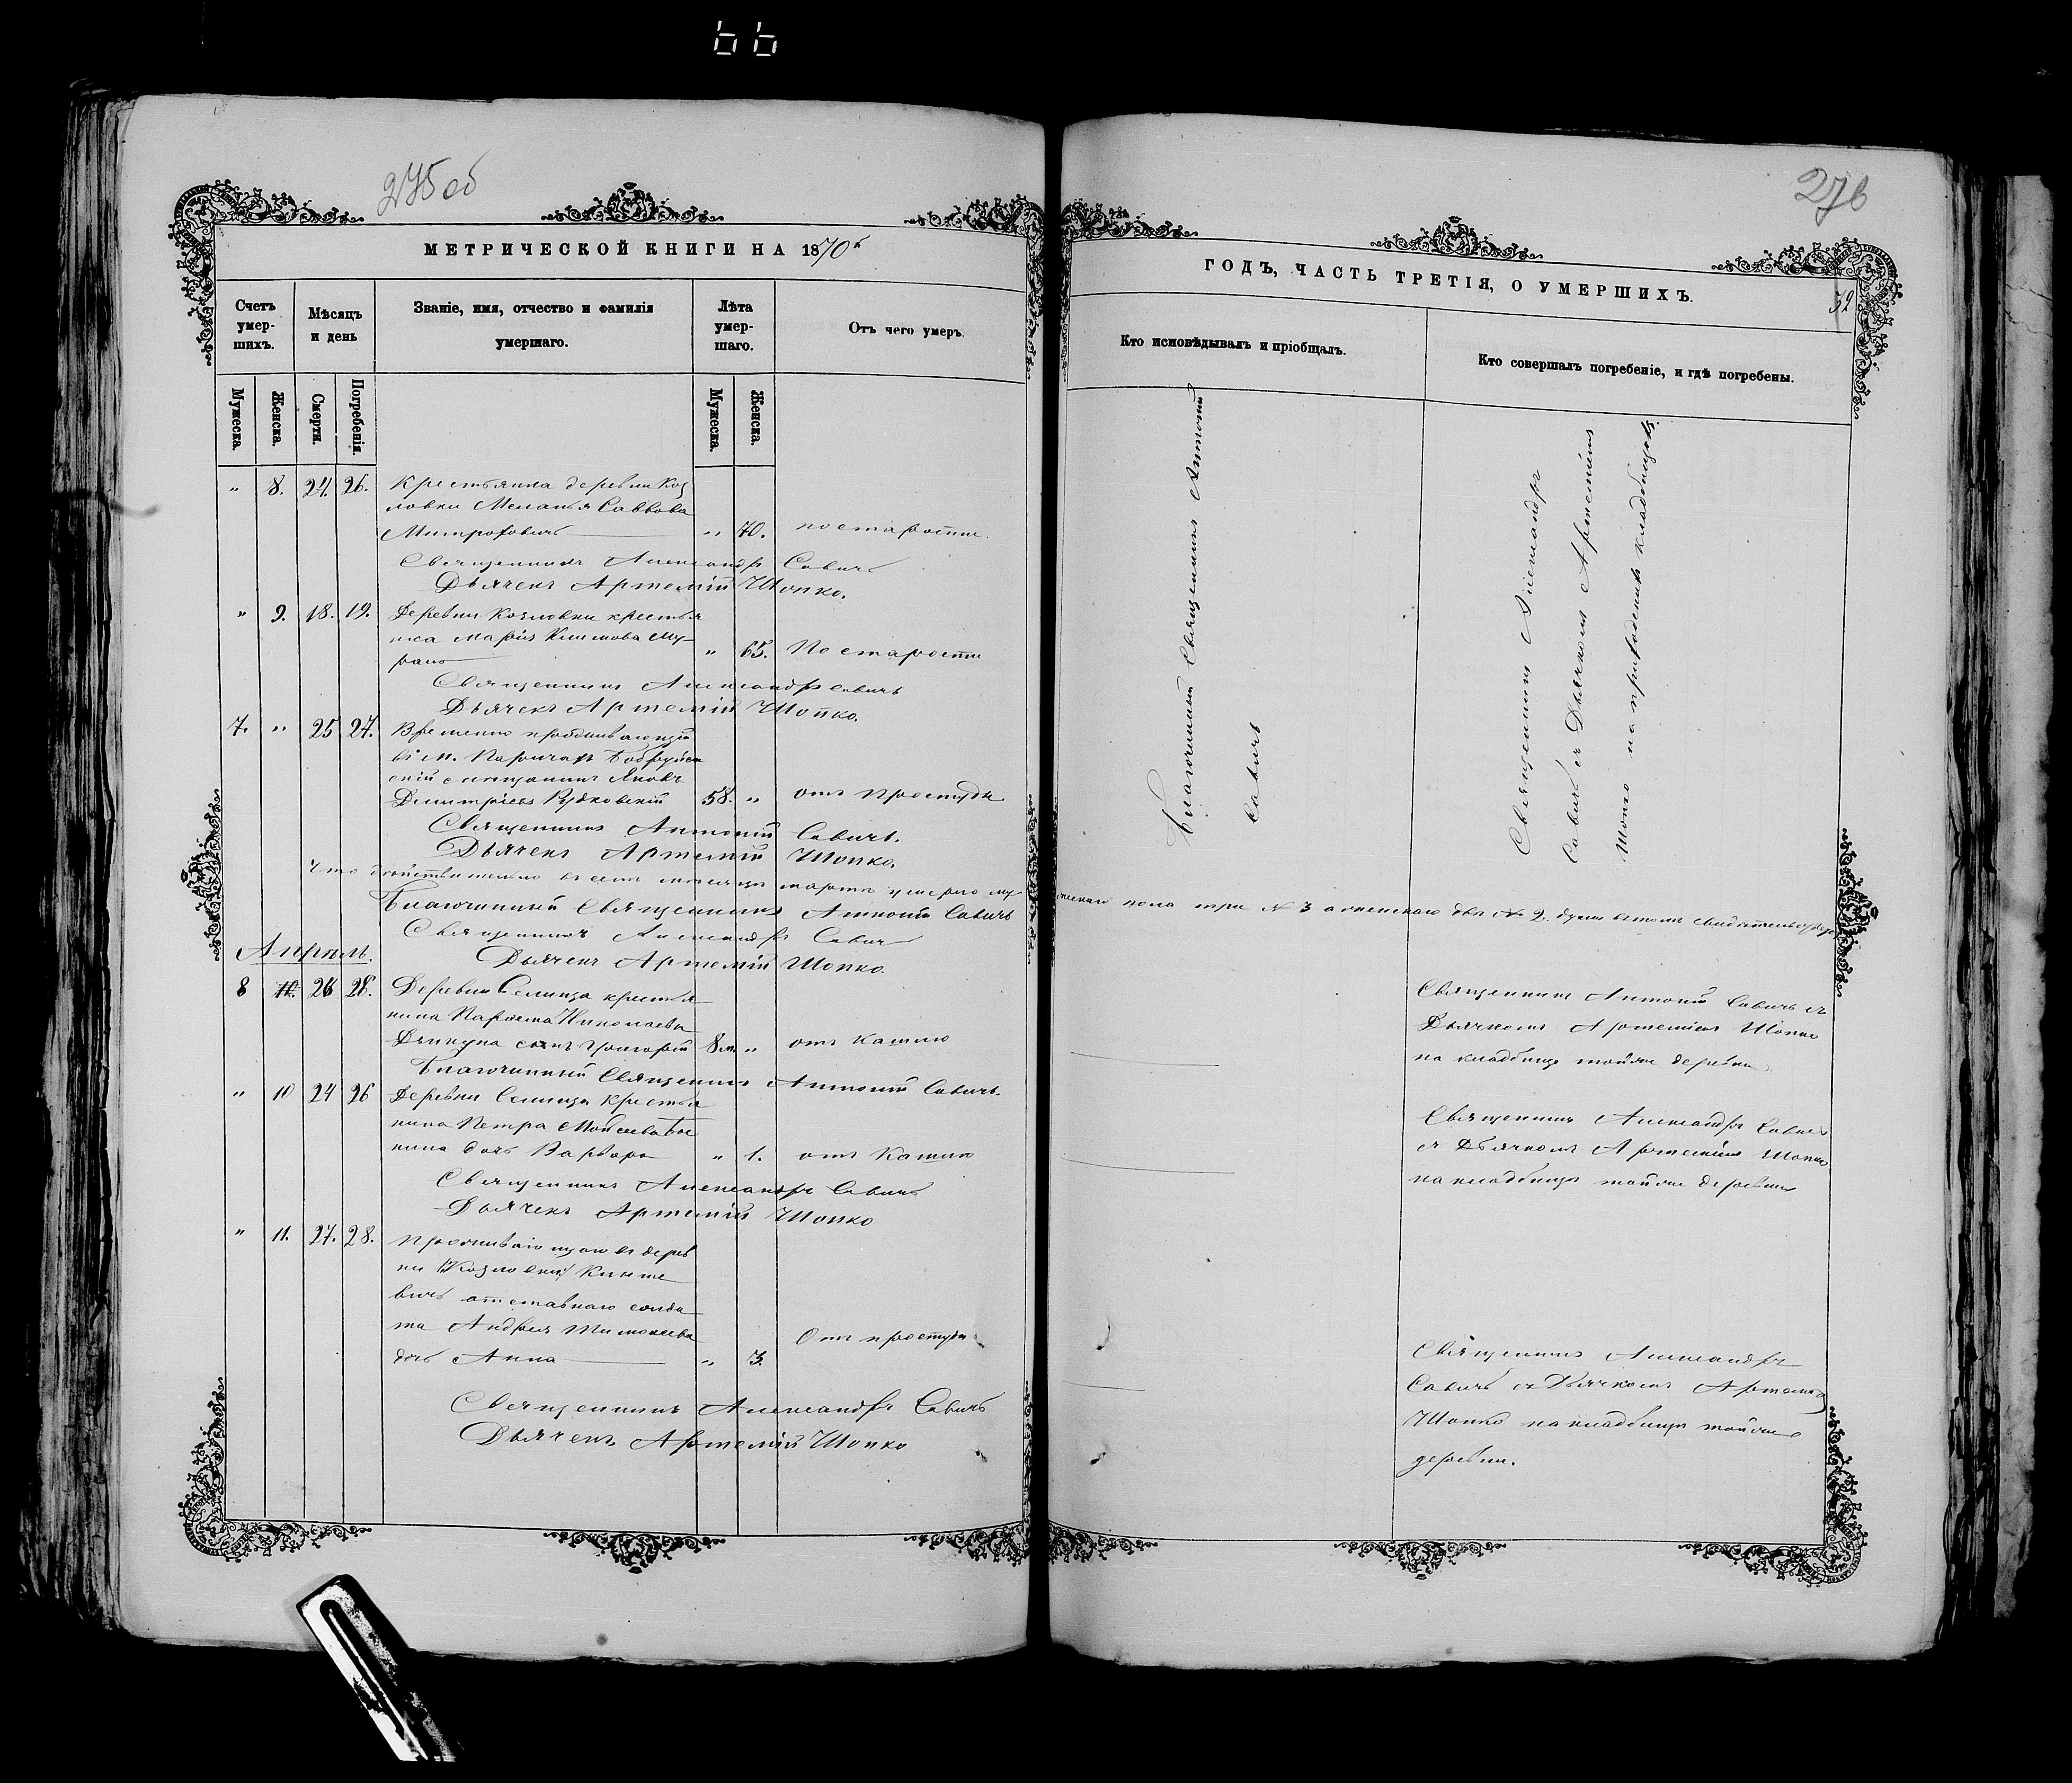 275 об
МЕТРИЧЕСКОЙ КНИГИ НА 1870й
Счетъ умер-шихъ.
Мѣсяцъ и день
Званіе, имя, отчество и фамилія умершаго.
Лѣта умер-шаго.
Отъ чего умеръ.
Мужеска.
Женска.
Смерти.
Погребенія.
Мужеска.
Женска.
" 8. 24. 26. Крестьянка деревни Коз
ловки Меланья Саввова
Митрофовичъ " 70. по старости.
Священникъ Александръ Савичъ
Дьячекъ Артемій Шопко.
" 9. 18. 19. Деревни Козловки крестья
нка Марія Климова Му-
" 65. По старости
Священникъ Александръ Савичъ
Дьячекъ Артемій Шопко.
7. " 25 27. Временно проживающій
въ м. Паричахъ Бобруйс
кій мещанинъ Яковъ
Димитріевъ Рудковскій 58. " отъ простуды
Священникъ Антоній Савичъ.
Дьячекъ Артемій Шопко.
Что действительно въ семъ месяце марте умерло му-
Благочинный Священникъ Антоній Савичъ
Священникъ Александръ Савичъ
Апрель.
Дьячекъ Артемій Шопко.
8 10. 26 28. Деревни Селища крестья
нина Николаева
сынъ Григорій 8 м. " отъ кашлю
Благочинный Священникъ Антоній Савичъ.
" 10 24 26 Деревни Селища крестья
нина Петра Мойсеева
нина дочь Варвара " 1. отъ кашлю
Священникъ Александръ Савичъ
Дьячекъ Артемій Шопко
" 11. 27. 28. Проживающаго въ дерев
ни Козловки
вичъ отставнаго солда
та Андрея Тимофеева
дочь Анна " 3. Отъ простуды
Священникъ Александръ Савичъ
Дьячекъ Артемій Шопко
276
ГОДЪ, ЧАСТЬ ТРЕТІЯ, О УМЕРШИХЪ.
32
Кто исповѣдывалъ и пріобщалъ.
Кто совершалъ погребеніе, и гдѣ погребены.
Благочинный Священникъ Антоній
Савичъ
Священникъ Александръ
Савичъ съ Дьячкомъ Артеміемъ
Шопко на приходскихъ кладбищахъ.
жескаго пола три № 3 а женскаго две № 2. души въ томъ
Священникъ Антоній Савичъ съ
Дьячкомъ Артеміемъ Шопко
на кладбище тойже деревни
Священникъ Александръ Савичъ
съ Дьячкомъ Артеміемъ Шопко
на кладбище тойже деревни
Священникъ Александръ
Савичъ съ Дьячкомъ Артеміемъ
Шопко на кладбище тойже
деревни.